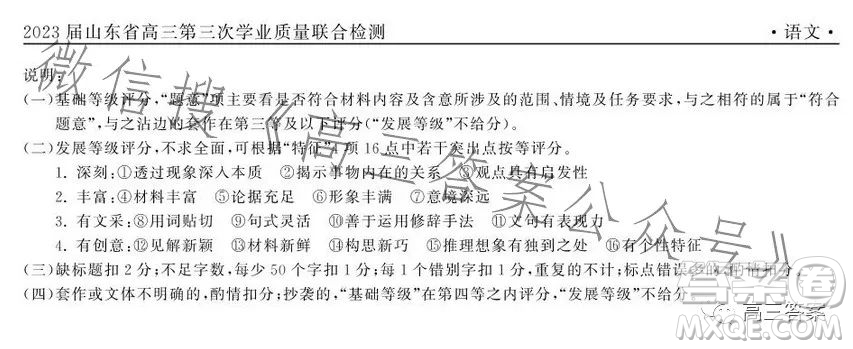 2023 届山东省高三第三次学业质量联合检测 ·语文·
说明:
(一)基础等级评分,“题意”项主要看是否符合材料内容及含意所涉及的范围、情境及任务要求,与之相符的属于“符合
题意”,与之沾边的套作在第三等及以下评分(“发展等级”不给分)。
(二)发展等级评分,不求全面,可根据“特征”4 项 16 点中若干突出点按等评分。
1. 深刻:①透过现象深入本质 ②揭示事物内在的关系 ③观点具有启发性
2. 丰富:④材料丰富 ⑤论据充足 ⑥形象丰满 ⑦意境深远
3. 有文采:⑧用词贴切 ⑨句式灵活 ⑩善于运用修辞手法 ⑪文句有表现力
4. 有创意:⑫见解新颖 ⑬材料新鲜 ⑭构思新巧 ⑮推理想象有独到之处 ⑯有个性特征
(三)缺标题扣 2 分;不足字数,每少 50 个字扣 1 分;每 1 个错别字扣 1 分,重复的不计;标点错误多的,酌情扣分。
(四)套作或文体不明确的,酌情扣分;抄袭的,“基础等级”在第四等之内评分,“发展等级”不给分
微信搜《高三答案公众号》
答案圈
高三答案
MXQE.COM